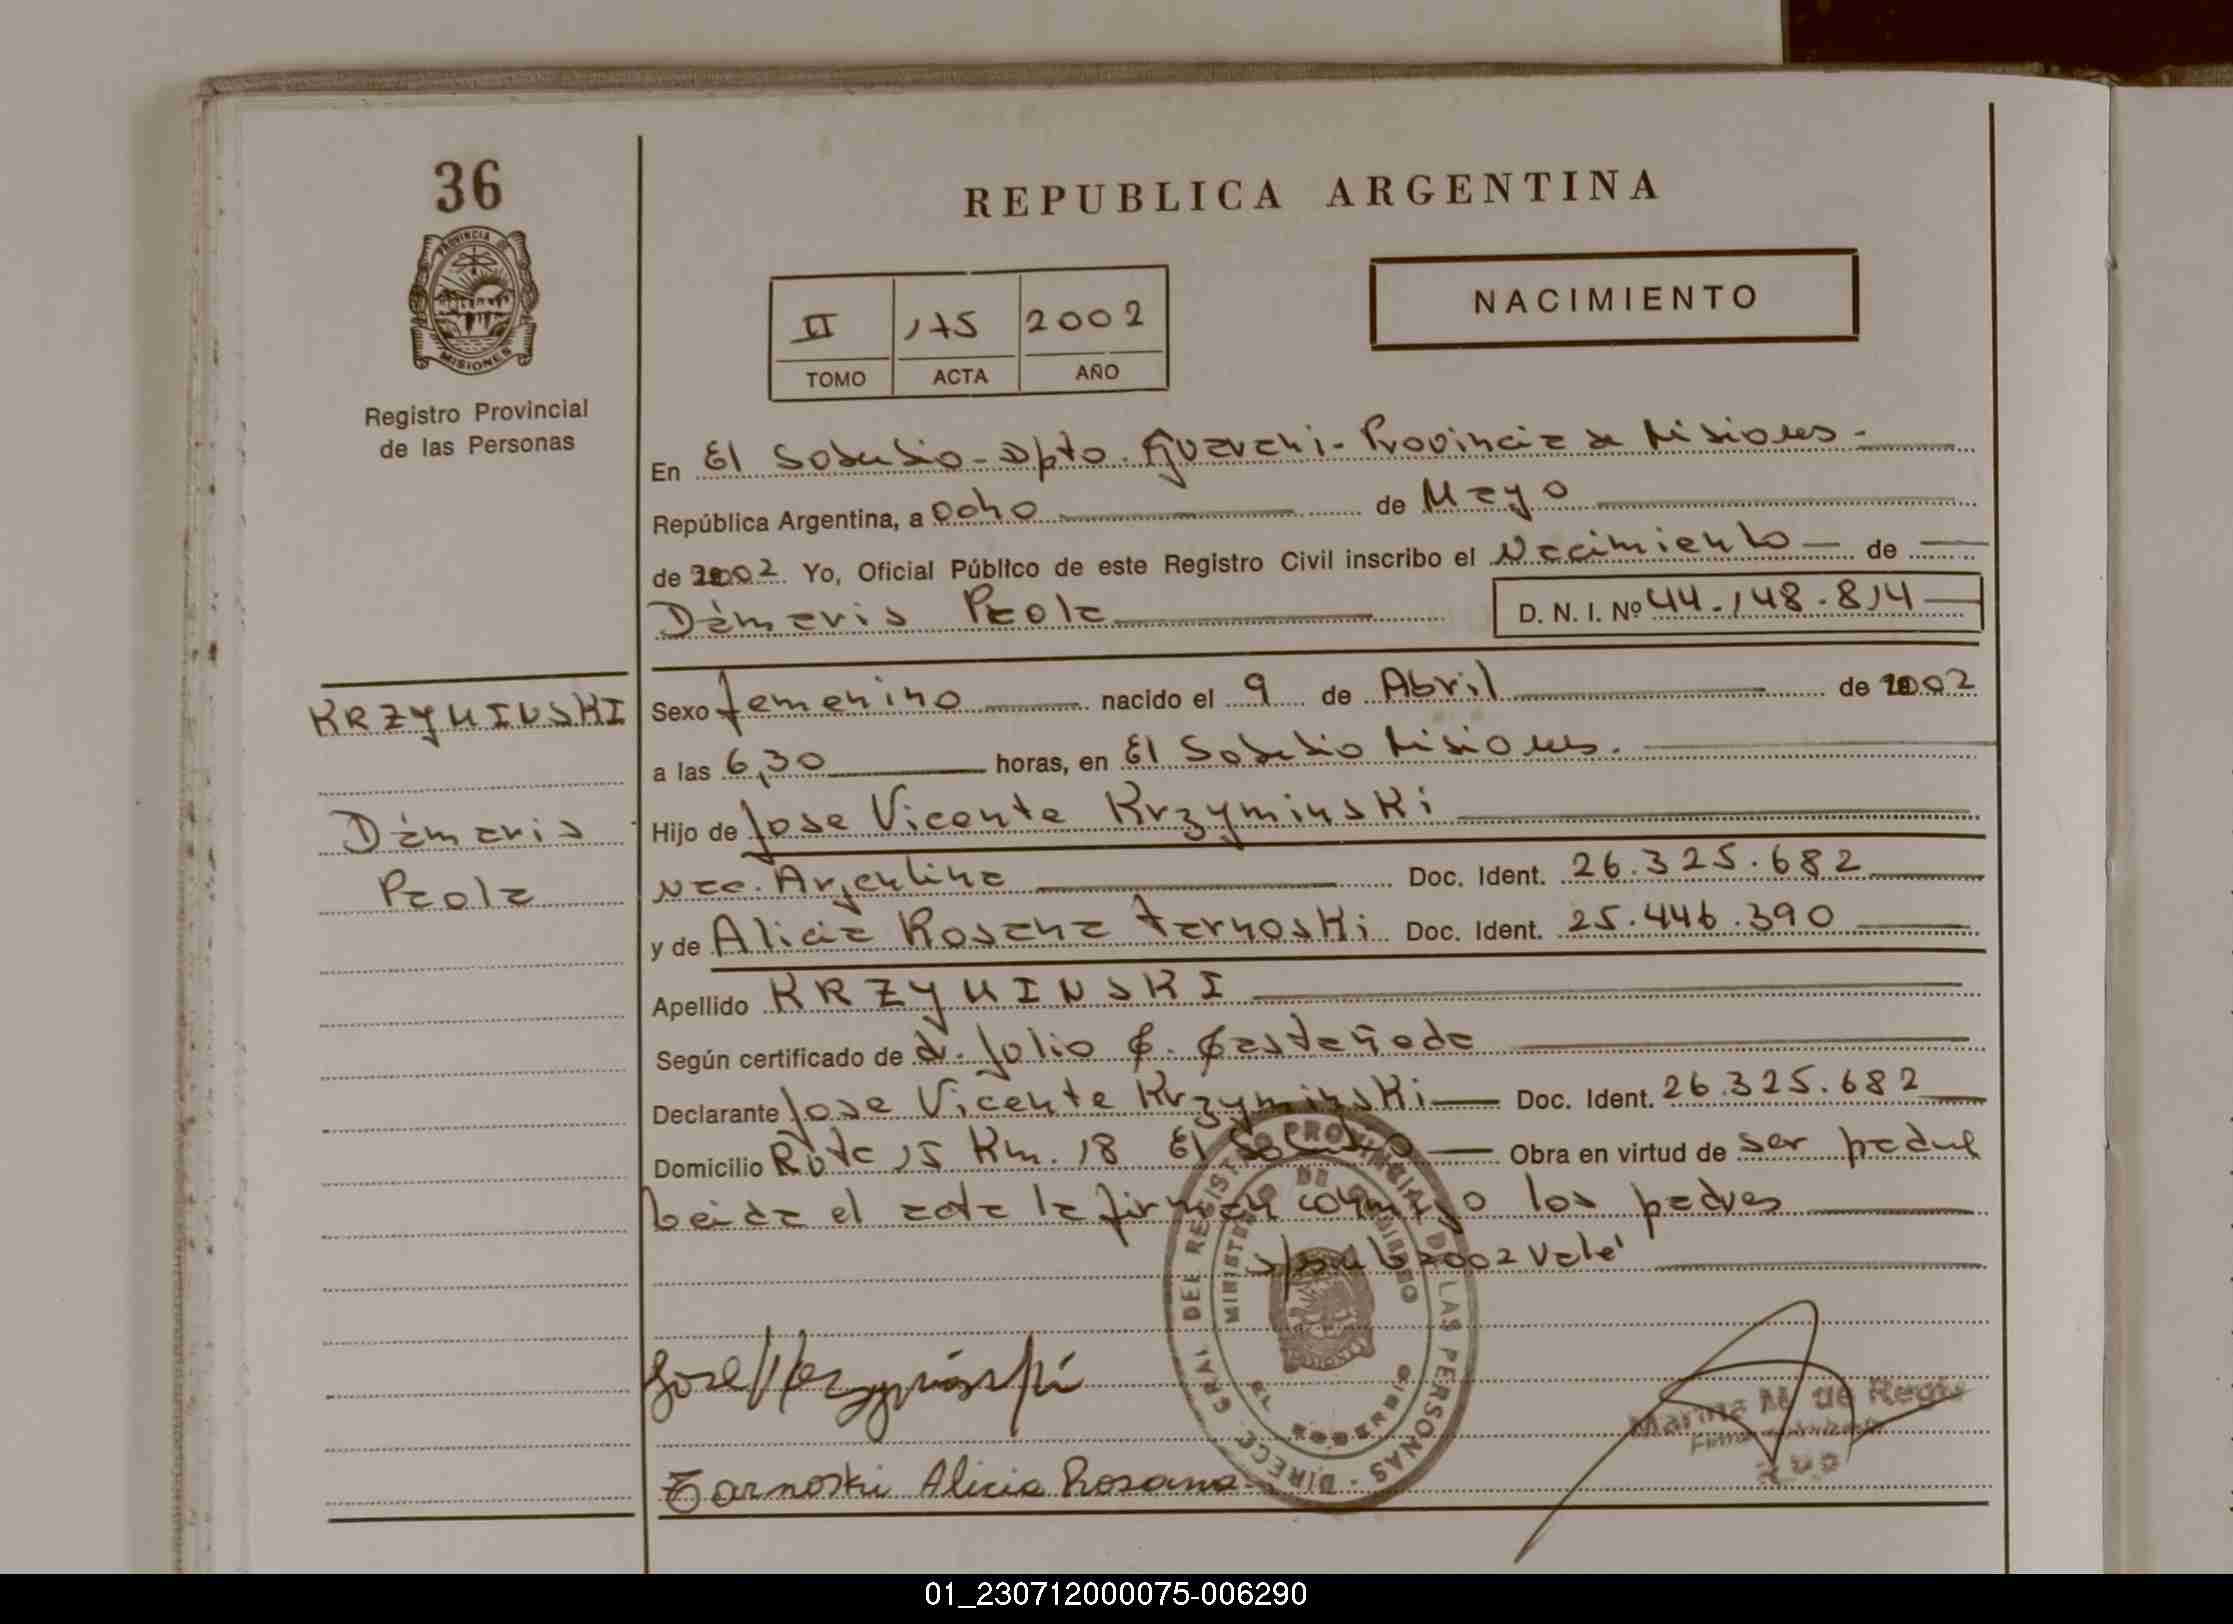 36
REPUBLICA ARGENTINA
PROVINCIA DE
MISIONES
Registro Provincial
de las Personas
NACIMIENTO
II 175 2002
TOMO ACTA AÑO
En El Soberbio - Dpto. Guarani - Provincia de Misiones -
República Argentina, a ocho de Mayo
de 2002 Yo, Oficial Público de este Registro Civil inscribo el Nacimiento de
Dámaris Paola D. N. I. Nº 44.148.814
KRZYMINSKI
Dámaris
Paola
Sexo femenino nacido el 9 de Abril de 2002
a las 6,30 horas, en El Soberbio Misiones.
Hijo de Jose Vicente Krzyminski
Nac. Argentina Doc. Ident. 26.325.682
y de Alicia Rosana Tarnoski Doc. Ident. 25.446.390
Apellido KRZYMINSKI
Según certificado de Dr. Julio C. Castañeda
Declarante Jose Vicente Krzyminski Doc. Ident. 26.325.682
Domicilio Ruta 15 Km. 18 El Soberbio Obra en virtud de ser padre
Leida el acta la firman conmigo los padres
2002 Vale
DIRECC. GRAL DEL REGISTRO PROVINCIAL DE LAS PERSONAS
MINISTERIO DE GOBIERNO
EL SOBERBIO
Jose Krzyminski
Tarnoski Alicia Rosana
Marina M. de Regis
01_230712000075-006290